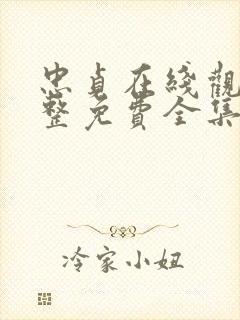 忠貞在綫觀
整免費全集
冷家小妞